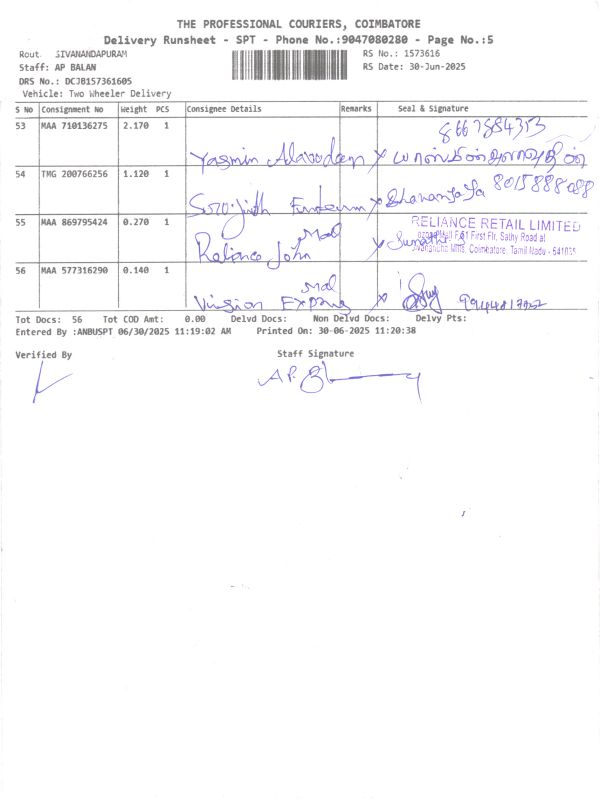 THE PROFESSIONAL COURIERS, COIMBATORE
Delivery Runsheet - SPT - Phone No.:9047080280 - Page No.:5
Rout. SIVANANDAPURAM
RS No.: 1573616
Staff: AP BALAN
RS Date: 30-Jun-2025
DRS No.: DCJB157361605
Vehicle: Two Wheeler Delivery
S No Consignment No Weight PCS Consignee Details Remarks Seal & Signature
53 MAA 710136275 2.170 1
Yasmin Alavudeen x
54 TMG 200766256 1.120 1
x 8015888088
55 MAA 869795424 0.270 1
RELIANCE RETAIL LIMITED
First Flr, Sathy Road at
Coimbatore, Tamil Nadu - 641035
Reliance John x
56 MAA 577316290 0.140 1
x
Tot Docs: 56 Tot COD Amt: 0.00 Delvd Docs: Non Delvd Docs: Delvy Pts:
Entered By :ANBUSPT 06/30/2025 11:19:02 AM Printed On: 30-06-2025 11:20:38
Verified By Staff Signature